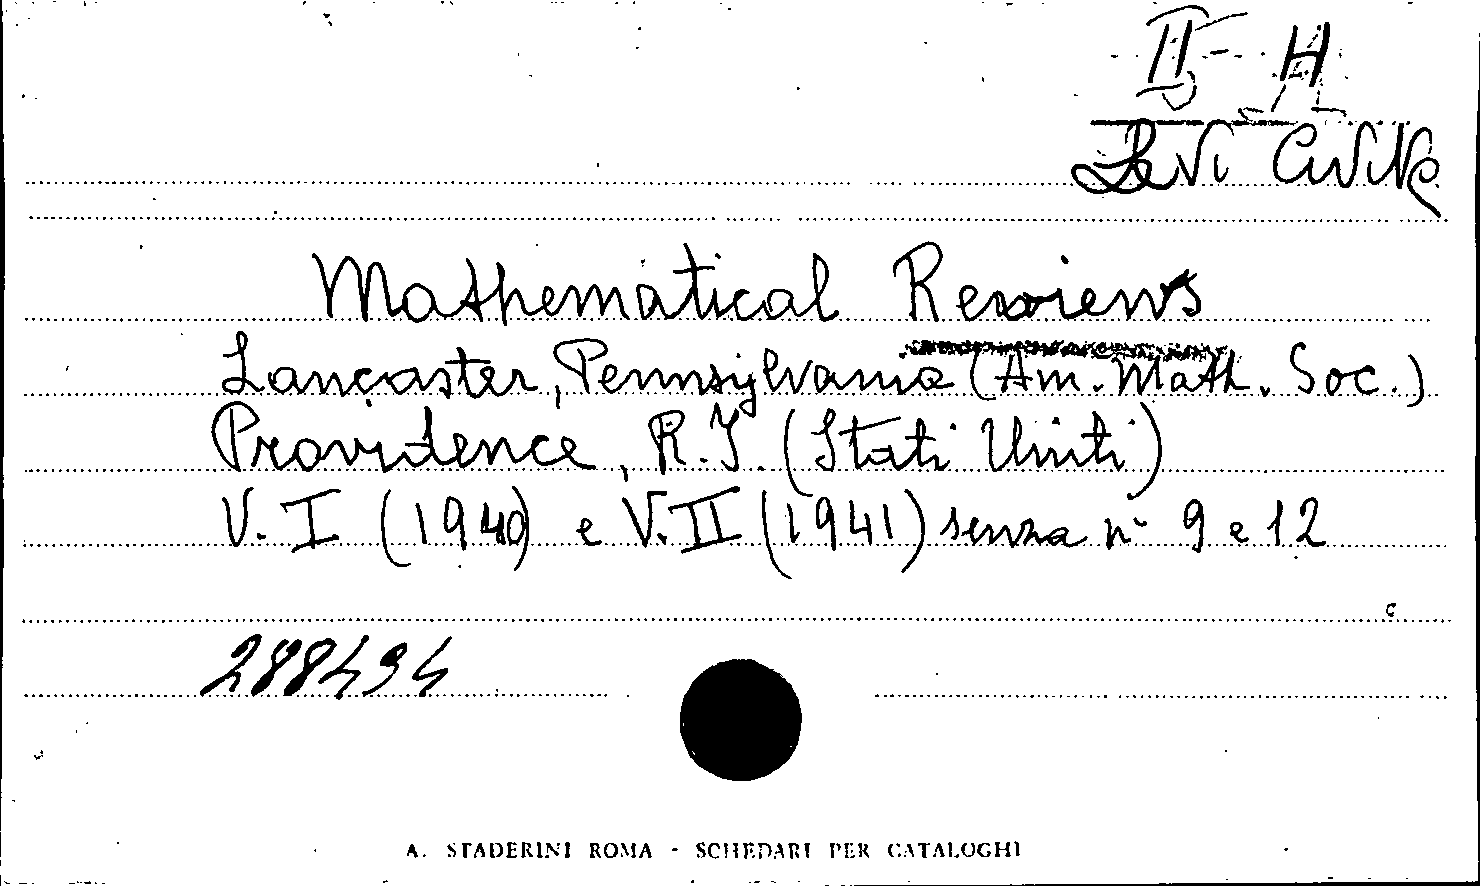 II - H
Levi Civita
Mathematical Reviews
Lancaster, Pennsylvania (Am. Math. Soc.)
Providence, R.I. (Stati Uniti)
V. I (1940) e V. II (1941) senza n° 9 e 12
288494
A. STADERINI ROMA - SCHEDARI PER CATALOGHI